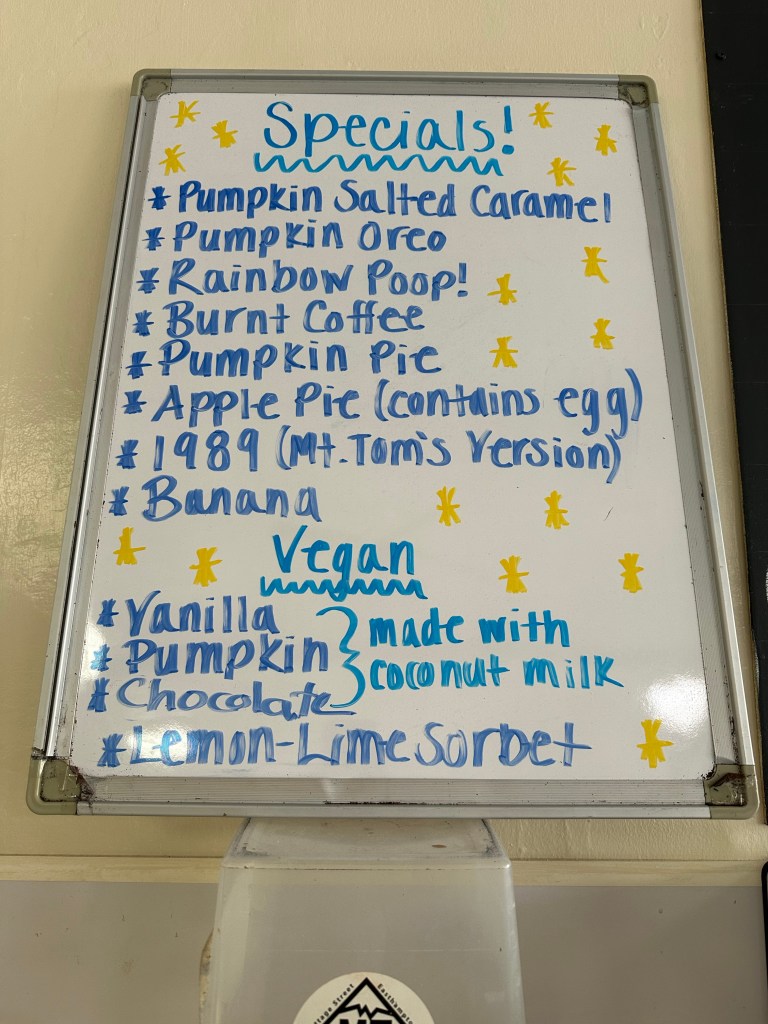 Specials!
* Pumpkin Salted Caramel
* Pumpkin Oreo
* Rainbow Poop!
* Burnt Coffee
* Pumpkin Pie
* Apple Pie (contains egg)
* 1989 (Mt. Tom's Version)
* Banana
Vegan
* Vanilla
* Pumpkin
* Chocolate
made with
coconut milk
* Lemon-Lime Sorbet
Street